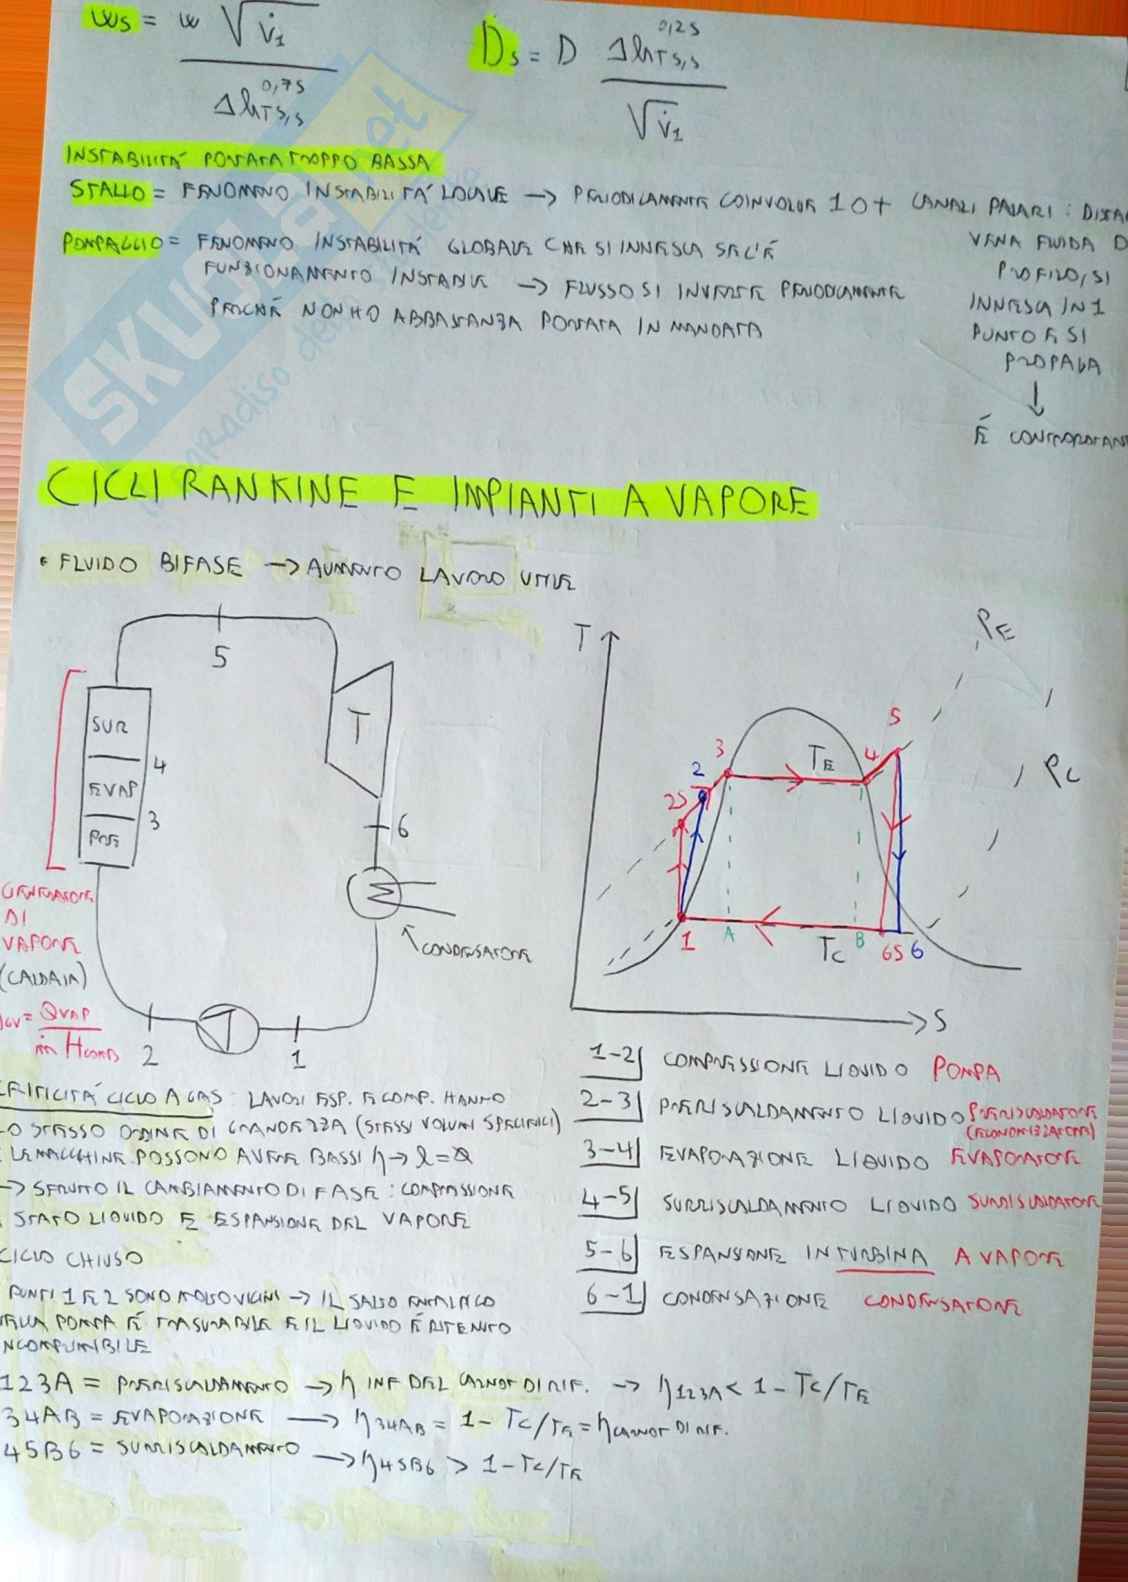 ωs = ω √V̇1 / ΔhTs,s^0,75
Ds = D ΔhTs,s^0,25 / √V̇1
INSTABILITÁ PORTATA TROPPO BASSA
STALLO = FENOMENO INSTABILITÁ LOCALE → PERIODICAMENTE COINVOLGE 1 O + CANALI PALARI :
VENA FLUIDA
PROFILO, SI
INNESCA IN 1
PUNTO E SI
PROPAGA
↓
É
POMPAGGIO = FENOMENO INSTABILITÁ GLOBALE CHE SI INNESCA SE C'É
FUNZIONAMENTO INSTABILE → FLUSSO SI INVERTE PERIODICAMENTE
PERCHÉ NON HO ABBASTANZA PORTATA IN MANDATA
SKUOLA.net
CICLI RANKINE E IMPIANTI A VAPORE
• FLUIDO BIFASE → AUMENTO LAVORO UTILE
5
SUR
4
EVAP
3
PRE
T
6
GENERATORE
DI
VAPORE
(CALDAIA)
ηGV = QVAP / ṁ HCOMB
CONDENSATORE
2
1
T
PE
PC
5
4
TE
3
2
2S
1
A
TC
B
6S
6
S
1-2 COMPRESSIONE LIQUIDO POMPA
2-3 PRERISCALDAMENTO LIQUIDO PRERISCALDATORE
(ECONOMIZZATORE)
3-4 EVAPORAZIONE LIQUIDO EVAPORATORE
4-5 SURRISCALDAMENTO LIQUIDO SURRISCALDATORE
5-6 ESPANSIONE IN TURBINA A VAPORE
6-1 CONDENSAZIONE CONDENSATORE
CRITICITÁ CICLO A GAS : LAVORI ESP. E COMP. HANNO
LO STESSO ORDINE DI GRANDEZZA (STESSI VOLUMI SPECIFICI)
LE MACCHINE POSSONO AVERE BASSI η →
→ SFRUTTO IL CAMBIAMENTO DI FASE : COMPRESSIONE
STATO LIQUIDO E ESPANSIONE DEL VAPORE
CICLO CHIUSO
PUNTI 1 E 2 SONO MOLTO VICINI → IL SALTO ENTALPICO
NELLA POMPA É TRASCURABILE E IL LIQUIDO É RITENUTO
INCOMPRIMIBILE
123A = PRERISCALDAMENTO → η INF DEL CARNOT DI RIF. → η123A < 1 - TC/TE
34AB = EVAPORAZIONE → η34AB = 1 - TC/TE = ηCARNOT DI RIF.
45B6 = SURRISCALDAMENTO → η45B6 > 1 - TC/TE